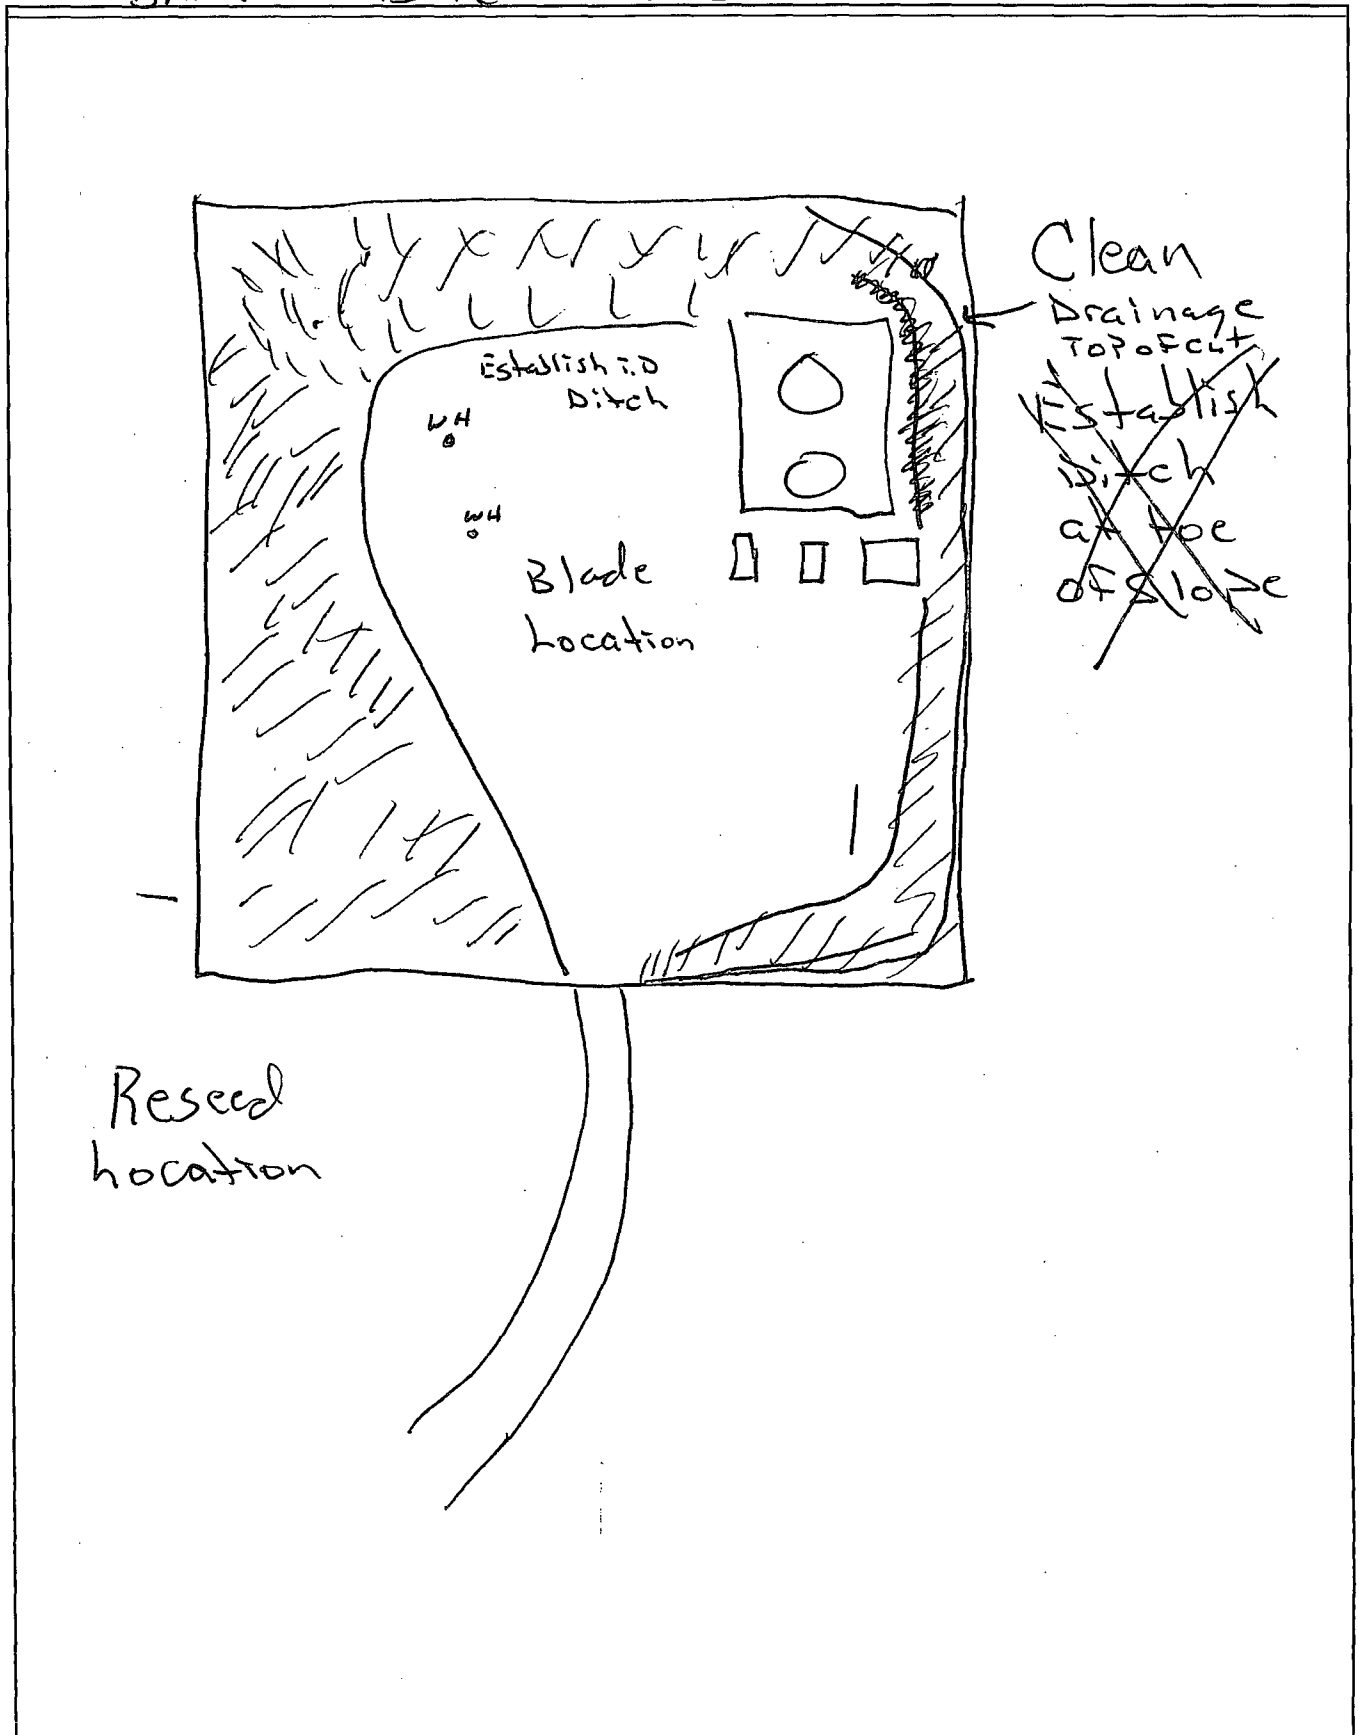 Clean
Drainage
Top of cut
Establish
Ditch
at toe
of Slope
Establish i.D
Ditch
WH
WH
Blade
Location
Reseed
Location